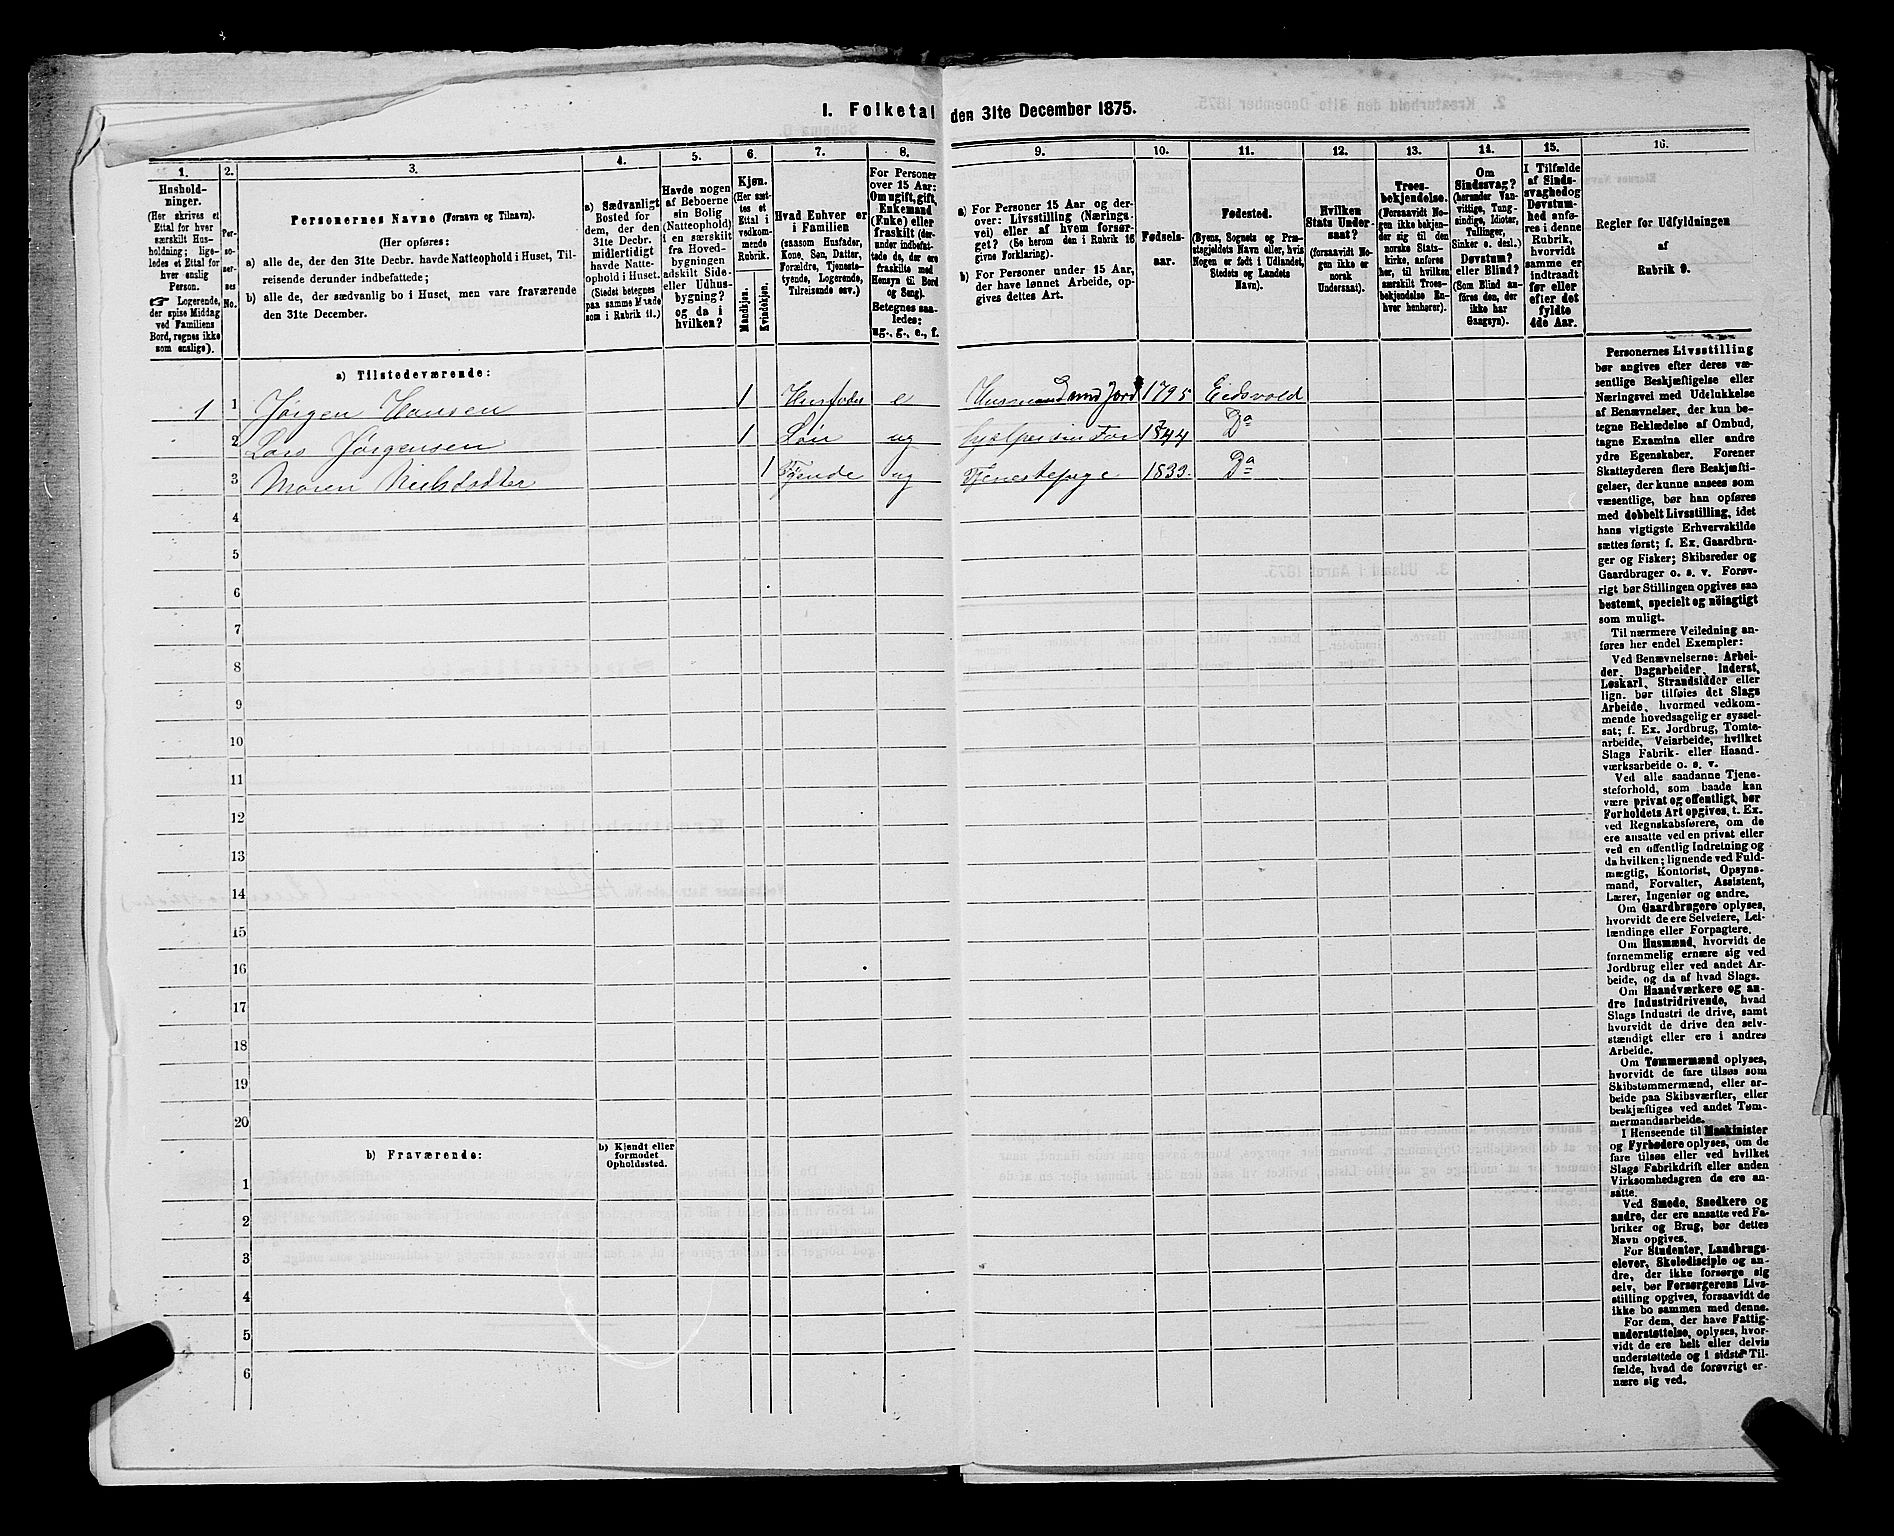 1. Folketal den 31te December 1875.
1.
Hushold-
ninger.
(Her skrives et
Ettal for hver
særskilt Hus-
holdning; lige-
ledes et Ettal for
hver enslig
Person.
☞ Logerende,
der spise Middag
ved Familiens
Bord, regnes ikke
som enslige).
2.
Per-
so-
ner-
nes
No.
3.
Personernes Navne (Fornavn og Tilnavn).
(Her opføres:
a) alle de, der den 31te Decbr. havde Natteophold i Huset, Til-
reisende derunder indbefattede;
b) alle de, der sædvanlig bo i Huset, men vare fraværende
den 31te December.
4.
a) Sædvanligt
Bosted for
dem, der den
31te Decbr.
midlertidigt
havde Natte-
ophold i Huset.
(Stedet betegnes
paa samme Maade
som i Rubrik 11.)
5.
Havde nogen
af Beboerne
sin Bolig
(Natteophold)
i en særskilt
fra Hoved-
bygningen
adskilt Side-
eller Udhus-
bygning?
og da i
hvilken?
6.
Kjøn.
(Her sæt-
tes et
Ettal i
vedkom-
mende
Rubrik.
Mandkjøn.
Kvindekjøn.
7.
Hvad Enhver er
i Familien
(saasom Husfader,
Kone, Søn, Datter,
Forældre, Tjeneste-
tyende, Logerende,
Tilreisende osv.)
8.
For Personer
over 15 Aar:
Om ugift, gift,
Enkemand
(Enke) eller
fraskilt (der-
under indbefat-
tede de, der ere
fraskilte med
Hensyn til Bord
og Seng).
Betegnes saa-
ledes:
ug., g., e., f.
9.
a) For Personer 15 Aar og der-
over: Livsstilling (Nærings-
vei) eller af hvem forsør-
get? (Se herom den i Rubrik 16
givne Forklaring).
b) For Personer under 15 Aar,
der have lønnet Arbeide, op-
gives dettes Art.
10.
Fødsels-
aar.
11.
Fødested.
(Byens, Sognets og Præ-
stegjeldets Navn eller, hvis
Nogen er født i Udlandet,
Stedets og Landets
Navn).
12.
Hvilken
Stats Under-
saat?
(forsaavidt No-
gen ikke er
norsk
Undersaat).
13.
Troes-
bekjendelse.
(Forsaavidt No-
gen ikke bekjen-
der sig til den
norske Stats-
kirke, anføres
her, til hvilken
særskilt Troes-
bekjendelse En-
hver henhører).
14.
Om
Sindssvag?
(herunder Van-
vittige, Tung-
sindige, Idioter,
Tullinger,
Sinker o. desl.)
Døvstum?
eller Blind?
(Som Blind an-
føres den, der
ikke har
Gangsyn).
15.
I Tilfælde
af Sinds-
svaghed og
Døvstum-
hed anfø-
res i denne
Rubrik,
hvorvidt
samme er
indtraadt
før eller
efter det
fyldte
4de Aar.
16.
Regler for Udfyldningen
af
Rubrik 9.
a) Tilstedeværende:
1 1 Jørgen Hansen 1 Husfader e Husmand med Jord 1795 Eidsvold
2 Lars Jørgensen 1 Søn ug hjælper sin Far 1844 Do
3 Maren Nielsdatter 1 Tyende ug Tjenestepige 1833 Do
4
5
6
7
8
9
10
11
12
13
14
15
16
17
18
19
20
b) Fraværende:
b) Kjendt eller
formodet
Opholdssted.
1
2
3
4
5
6
Personernes Livsstilling
bør angives efter deres væ-
sentlige Beskjæftigelse eller
Næringsvei med Udelukkelse
af Benævnelser, der kun be-
tegne Beklædelse af Ombud,
tagne Examina eller andre
ydre Egenskaber. Forener
Skatteyderen flere Beskjæfti-
gelser, der kunne ansees som
væsentlige, bør han opføres
med dobbelt Livsstilling, idet
hans vigtigste Erhvervskilde
sættes først; f. Ex. Gaardbru-
ger og Fisker; Skibsreder og
Gaardbruger o. s. v. Forøv-
rigt bør Stillingen opgives saa
bestemt, specielt og nøiagtigt
som muligt.
Til nærmere Veiledning an-
føres her endel Exempler:
Ved Benævnelserne: Arbei-
der, Dagarbeider, Inderst,
Løskarl, Strandsidder eller
lign. bør tilføies det Slags
Arbeide, hvormed vedkom-
mende hovedsagelig er syssel-
sat; f. Ex. Jordbrug, Tomte-
arbeide, Veiarbeide, hvilket
Slags Fabrik- eller Haand-
værksarbeide o. s. v.
Ved alle saadanne Tjene-
steforhold, som baade kan
være privat og offentligt, bør
Forholdets Art opgives, t. Ex.
ved Regnskabsførere, om de
ere ansatte ved en privat eller
ved en offentlig Indretning og
da hvilken; lignende ved Fuld-
mægtig, Kontorist, Opsyns-
mand, Forvalter, Assistent,
Lærer, Ingeniør og andre.
Om Gaardbrugere oplyses,
hvorvidt de ere Selveiere, Lei-
lændinge eller Forpagtere.
Om Husmænd, hvorvidt de
fornemmelig ernære sig ved
Jordbrug eller ved andet Ar-
beide, og da af hvad Slags.
Om Haandværkere og an-
dre Industridrivende, hvad
Slags Industri de drive, samt
hvorvidt de drive den selv-
stændigt eller ere i andres
Arbeide.
Om Tømmermænd oplyses,
hvorvidt de fare tilsøs som
Skibstømmermænd, eller ar-
beide paa Skibsværfter, eller
beskjæftiges ved andet Tøm-
mermandsarbeide.
I Henseende til Maskinister
og Fyrbødere oplyses, om de
fare tilsøs eller ved hvilket
Slags Fabrikdrift eller anden
Virksomhedsgren de ere an-
satte.
Ved Smede, Snedkere og
andre, der ere ansatte ved Fa-
briker og Brug, bør dettes
Navn opgives.
For Studenter, Landbrugs-
elever, Skoledisciple og an-
dre, der ikke forsørge sig
selv, bør Forsørgerens Livs-
stilling opgives, forsaavidt de
ikke bo sammen med denne.
For dem, der have Fattig-
understøttelse, oplyses, hvor-
vidt de ere helt eller delvis
understøttede og i sidste Til-
fælde, hvad de forøvrigt er-
nære sig ved.